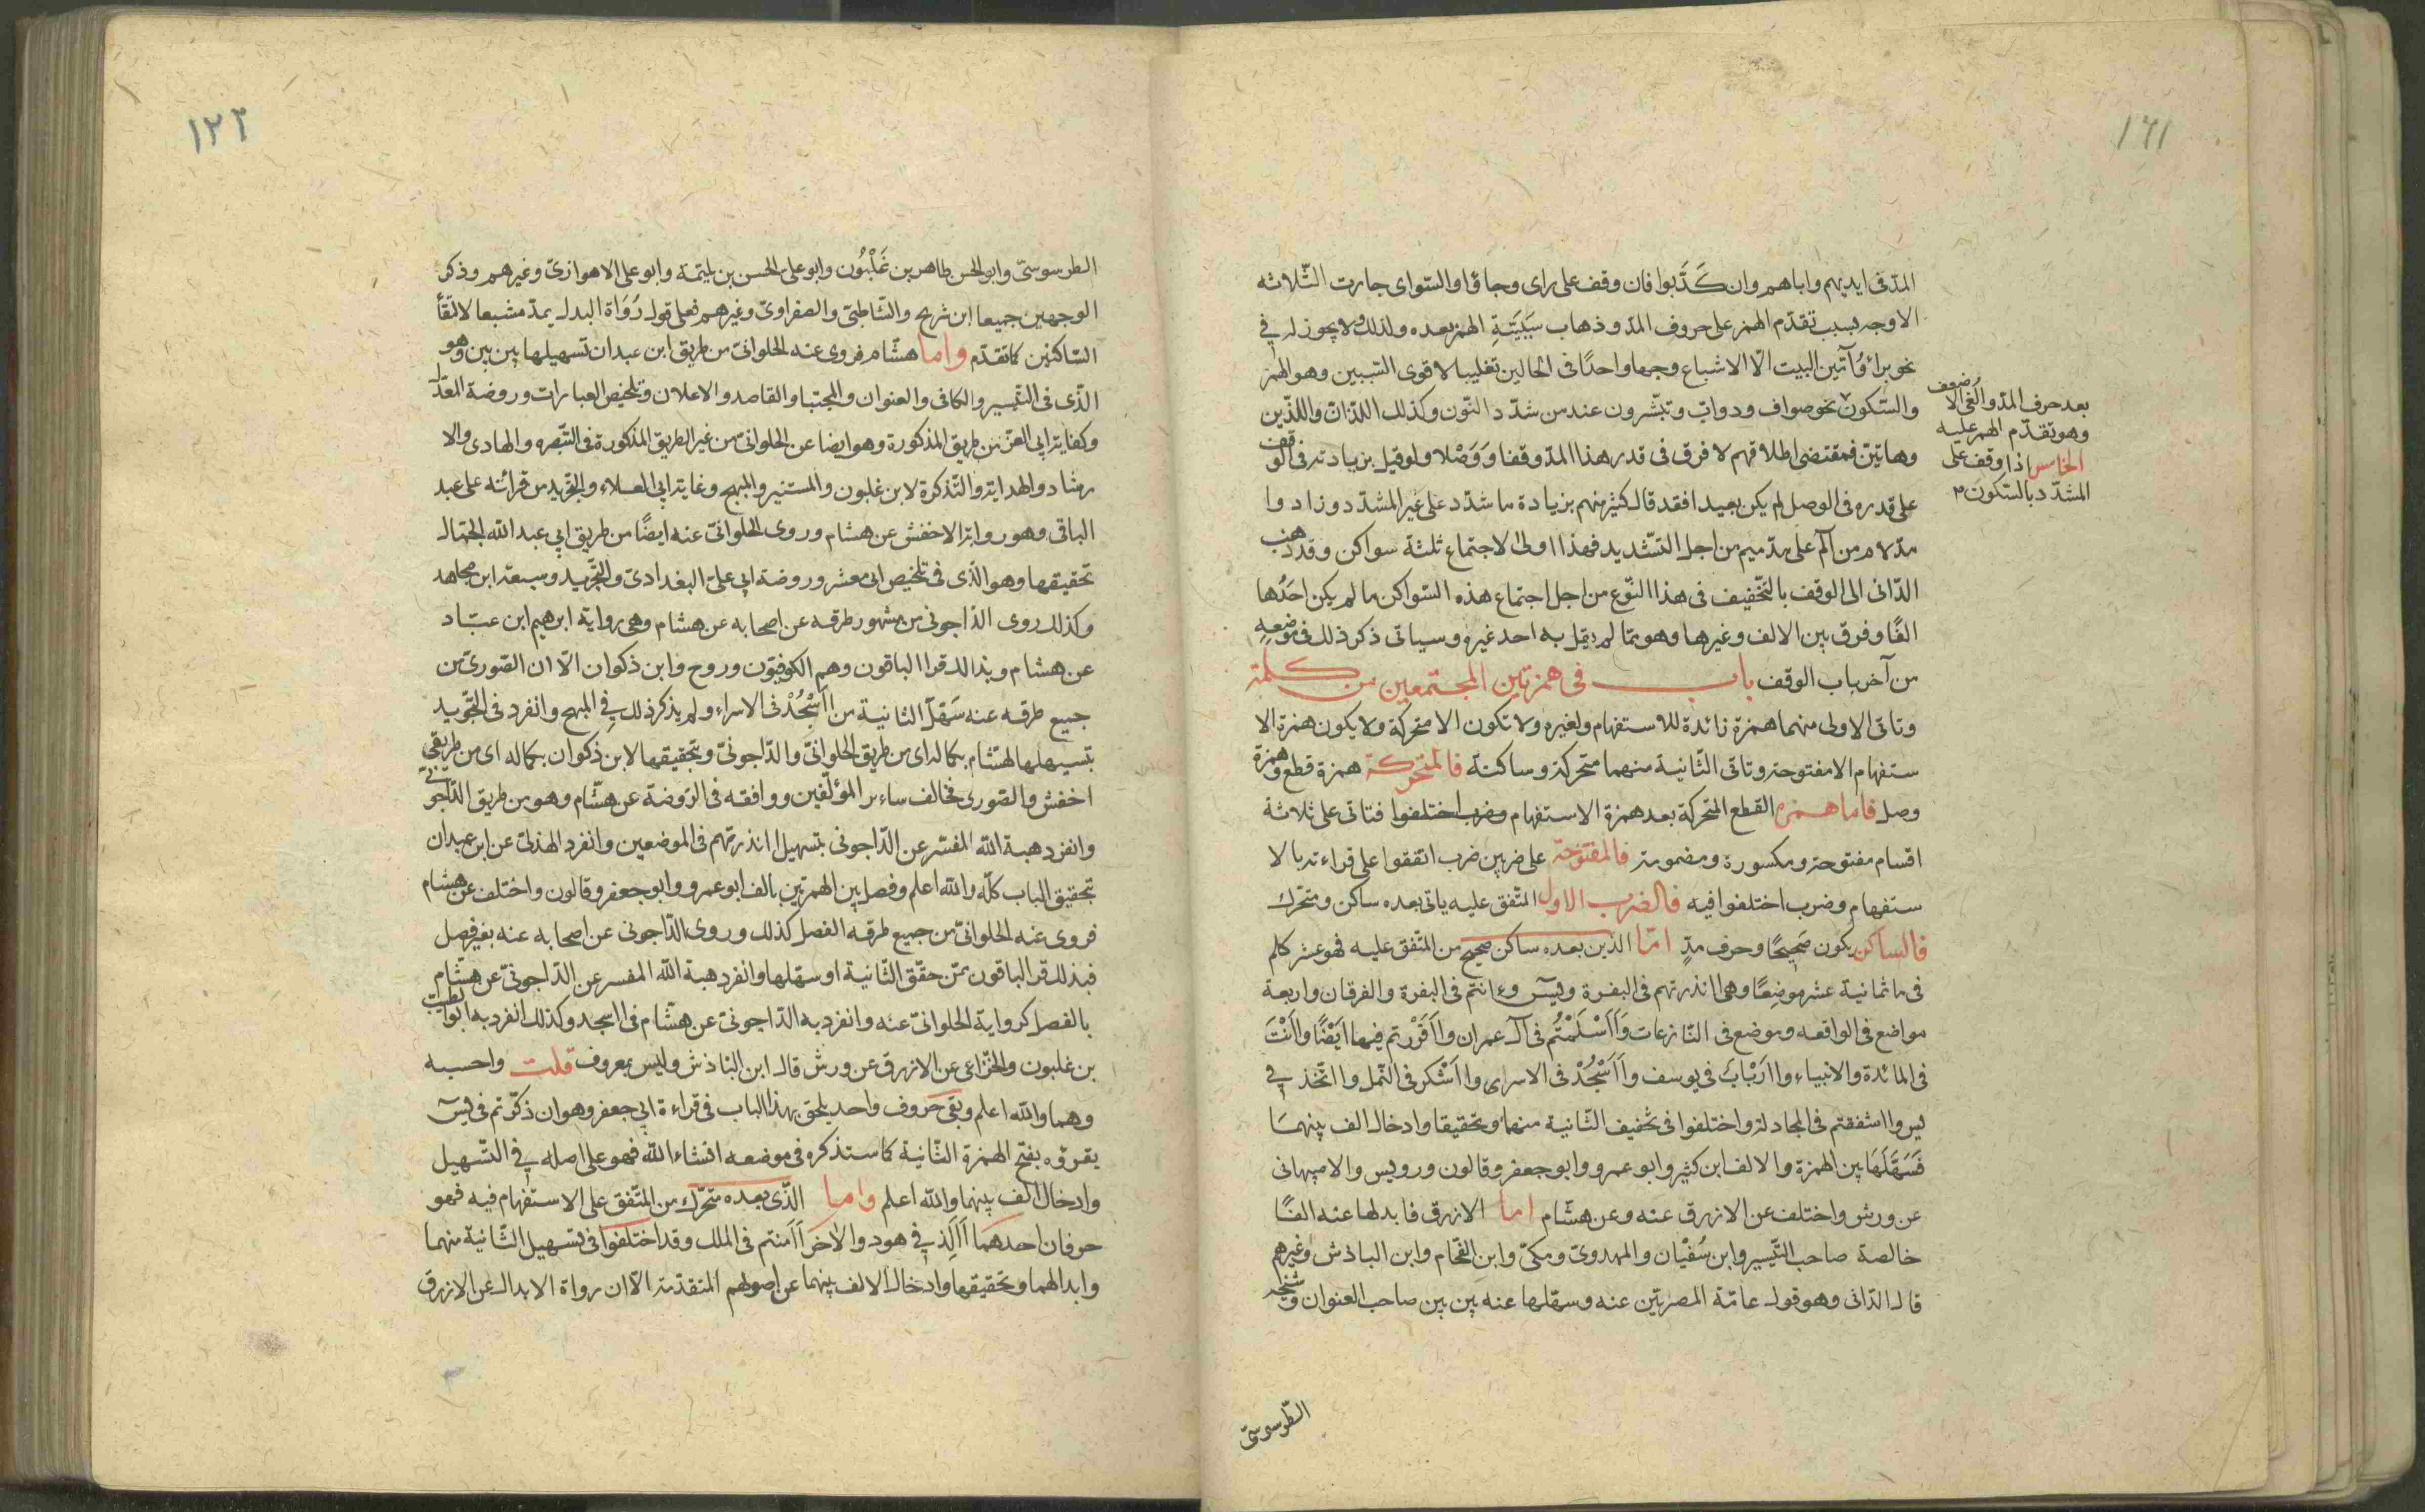 ١٢١
المدّ فى ايديهم واباهم وان كَذَّبوا فان وقف على راى وجاؤا والسّواى جازت الثّلاثه
الاوجه بسبب تقدّم الهمز على حروف المدّ وذهاب سَبَبيَّةِ الهمز بعده ولذلك لا يجوز له فى
نحو براؤا وآمّين البيت الّا الاشباع وجها واحدًا فى الحالين تغليبا لاقوى السّببين وهو الهمز
والسّكون نحو صواف ودوابّ وتبشّرون عند من شدّد النّون وكذلك اللذان واللذين
وهاتين فمقتضى اطلاقهم لا فرق فى قدر هذا المدّ وقفا وَوَصْلا ولو قيل بزيادته فى الوقف
على قدره فى الوصل لم يكن بعيدا فقد قال كثير منهم بزيادة ما شدّد على غير المشدّد وزادوا
مدّ لام من الٓمٓ على مدّ ميم من اجل التشديد فهذا اولى لاجتماع ثلثة سواكن وقد ذهب
الدّانى الى الوقف بالتخفيف فى هذا النّوع من اجل اجتماع هذه السّواكن ما لم يكن احَدُها
الفًا وفرق بين الالف وغيرها وهو ممّا لم يقل به احد غيره وسياتى ذكر ذلك فى موضعه
من آخر باب الوقف باب فى همزتين المجتمعين من كلمة
وتاتى الاولى منهما همزة زائدة للاستفهام ولغيره ولا تكون الا متحركة ولا يكون همزة الا
ستفهام الا مفتوحة وتاتى الثّانية منهما متحركة وساكنة فالمتحركة همزة قطع وهمزة
وصل فاما همزه القطع المتحركة بعد همزة الاستفهام وضرب اختلفوا فتاتى على ثلاثة
اقسام مفتوحة ومكسورة ومضمومة فالمفتوحة على ضربين ضرب اتفقوا على قراءته بالا
ستفهام وضرب اختلفوا فيه فالضرب الاول المتّفق عليه ياتى بعده ساكن ومتحرك
فالساكن يكون صَحِيحًا وحرف مدٍّ امّا الذين بعده ساكن صحيح من المتّفق عليه فهو عشر كلم
فى ما ثمانية عشر موضِعًا وهى اانذرتهم فى البقرة ويسٓ وءانتم فى البقرة والفرقان واربعة
مواضع فى الواقعه وموضع فى النّازعات وَأَاَسْلَمْتُم فى آل عمران واأَقْرَرْتم فيها ايَضًا وااَنْتَ
فى المائدة والانبياء وااَرْبَابٌ فى يوسف وأَاَسْجُدْ فى الاسرى وااَشْكر فى النّمل وااتّخذ فى
يس وااشفقتم فى المجادلة واختلفوا فى تخفيف الثّانية منهما وتحقيقها وادخال الف بينهمَا
فَسَهَّلَهَا بين الهمزة والالف ابن كثير وابو عمرو وابو جعفر وقالون ورويس والاصبهانى
عن ورش واختلف عن الازرق عنه وعن هشّام اما الازرق فابدلها عنه الفًا
خالصة صاحب التّيسير وابن سُفْيان والمهدوىّ ومكىّ وابن الفحّام وابن الباذش وغيرهم
قال الدّانى وهو قول عامّة المصريّين عنه وسهّلها عنه بين بين صاحب العنوان وشيخه
الطّرسوسىّ
بعد حرف المدّ والغى الاضعف
وهو تقدّم الهمز عليه
الخامس اذا وقف على
المشدّد بالسّكون م
١٢٢
الطرسوسىّ وابو الحسن طاهر بن غَلْبُون وابو على الحسن بن بليمة وابو على الاهوازىّ وغيرهم وذكر
الوجهين جميعا ابن شريح والشّاطبىّ والصفراوىّ وغيرهم فعلى قول رُوَاة البدل يمدّ مشبعا لالتقاء
السّاكنين كما تقدّم واما هشّام فروى عنه الحلوانىّ من طريق ابن عبدان تسهيلها بين بين وهو
الذّى فى التيسير والكافى والعنوان والمجتبا والقاصد والاعلان وتلخيص العبارات وروضة المعدّل
وكفاية ابى العزّ من طريق المذكورة وهو ايضا عن الحلوانىّ من غير الطريق المذكورة فى التّبصره والهادى والا
رشاد والهداية والتّذكرة لابن غلبون والمستنير والمبهج وغاية ابى العلاء والتّجريد من قرائته على عبد
الباقى وهو رواية الاخفش عن هشام وروى الحلوانىّ عنه ايضًا من طريق ابى عبد الله الجمّال
تحقيقها وهو الذّى فى تلخيص ابى معشر وروضة ابى علىّ البغدادىّ والتّجريد وسبعة ابن مجاهد
وكذلك روى الداجونى من مشهور طرقه عن اصحابه عن هشام وهى رواية ابرهيم ابن عبّاد
عن هشام وبذالك قرا الباقون وهم الكوفيّون وروح وابن ذكوان الّا ان الصّورىّ من
جميع طرقه عنه سَهّلَ الثانية من ااَسْجُدْ فى الاسراء ولم يذكر ذلك فى المبهج وانفرد فى التّجريد
بتسهيلها لهشام بكماله اى من طريق الحلوانىّ والدّاجونىّ وبتحقيقها لابن ذكوان بكماله اى من طريقى
اخفش والصّورى فخالف سائر المؤلّفين ووافقه فى الرّوضة عن هشّام وهو من طريق الدّاجونىّ
وانفرد هبة الله المفسّر عن الدّاجونى بتسهيل اانذرتهم فى الموضعين وانفرد الهذلىّ عن ابن عبدان
بتحقيق الباب كلّه والله اعلم وفصل بين الهمزتين بالف ابو عمرو وابو جعفر وقالون واختلف عن هشام
فروى عنه الحلوانىّ من جميع طرقه الفصل كذلك وروى الدّاجونى عن اصحابه عنه بغير فصل
فبذلك قرا الباقون ممّن حقّق الثّانية او سهّلها وانفرد هبة الله المفسر عن الدّاجونىّ عن هشّام
بالفصل كرواية الحلوانىّ عنه وانفرد به الدّاجونىّ عن هشّام فى ااسجد وكذلك انفرد به ابو الطيّب
بن غلبون والخزاعى عن الازرق عن ورش قال ابن الباذش وليس بمعروف قلت واحسبه
وهما والله اعلم وبقى حروف واحد يلحق بهذا الباب فى قراءة ابى جعفر وهو ان ذكّرتم فى يسٓ
يقرؤه بفتح الهمزة الثّانية كما ستذكره فى موضعه انشاء الله فهو على اصله فى التّسهيل
وادخال الف بينهما والله اعلم واما الذّى بعده متحرّك من المتّفق على الاستفهام فيه فهو
حرفان احدهما أَاَلِدُ فى هود والآخر أَاَمنتم فى الملك وقد اختلفوا فى تسهيل الثّانية منهما
وابدالهما وتحقيقها وادخال الالف بينهما عن اصولهم المتقدّمة الّا ان رواة الابدال عن الازرق